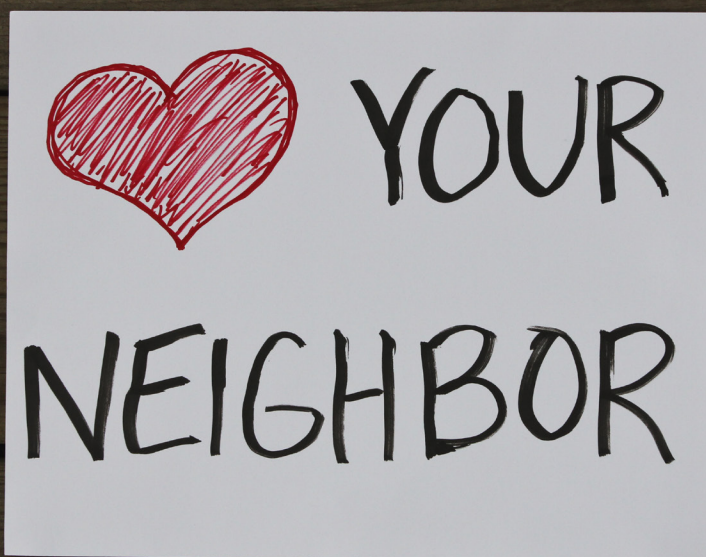 YOUR
NEIGHBOR